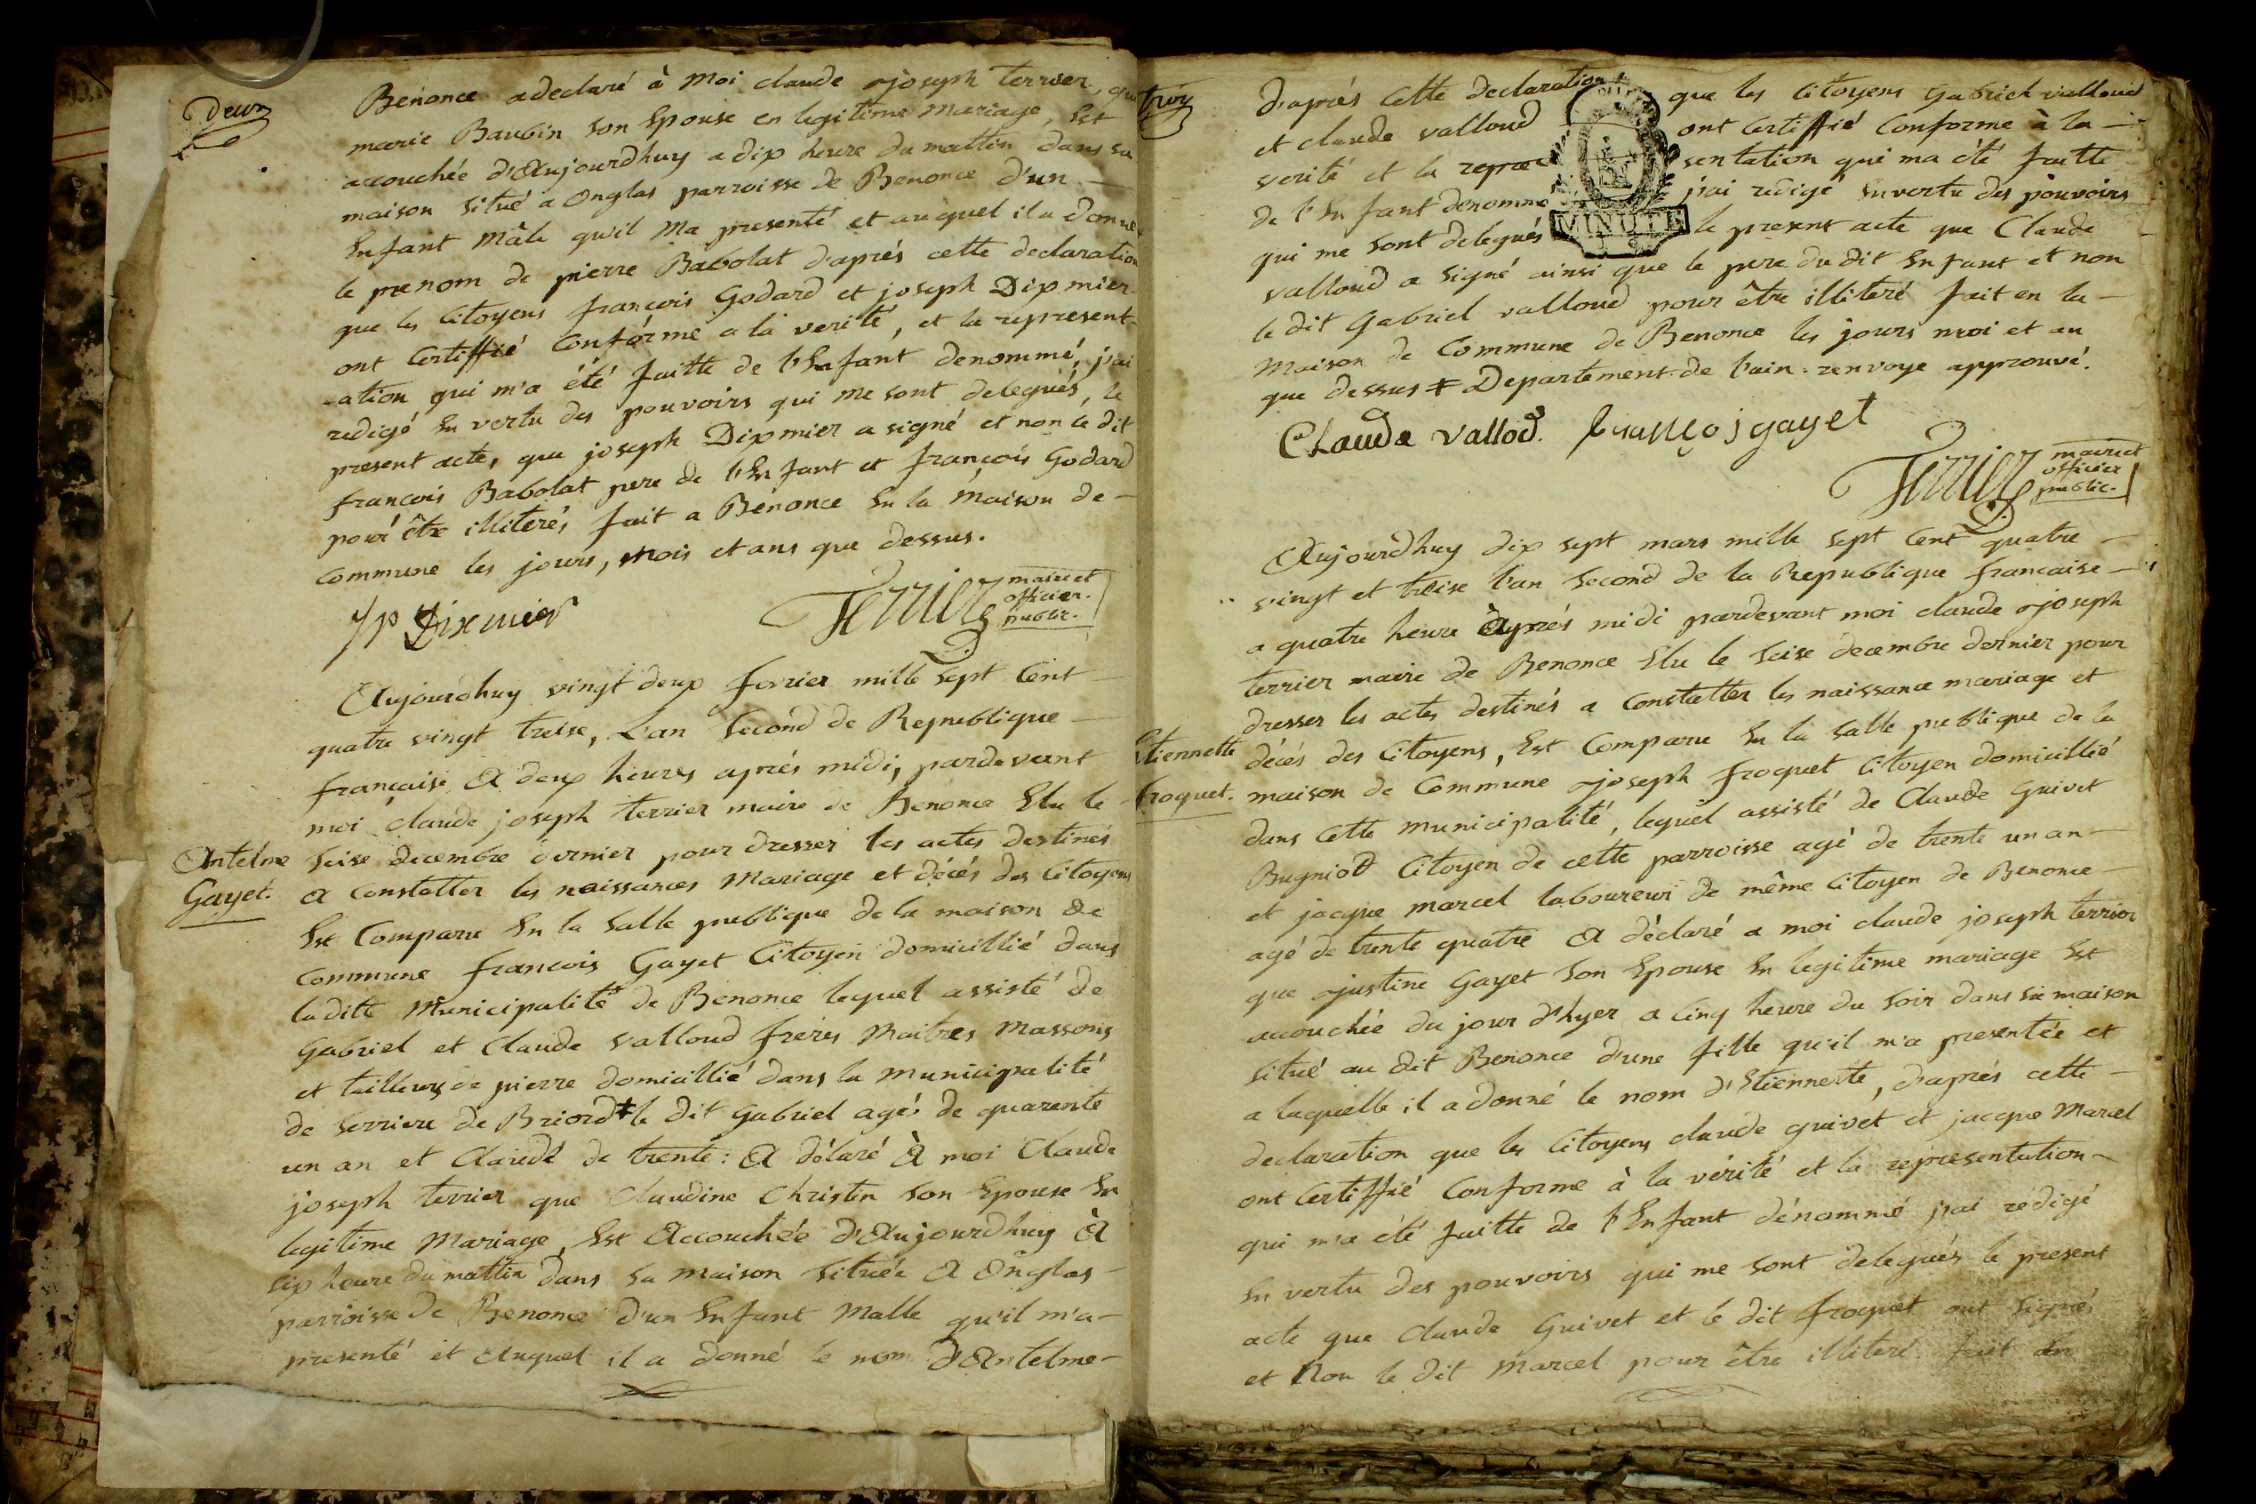 Deux
Benonce a declaré à Moi claude joseph terrier, que
marie Baubin son Epouse en legitime Mariage, Est
accouchée d'Aujourdhuy a dix heure du mattin dans sa
maison situé a Onglas parroisse de Benonce d'un
Enfant Mâle qu'il Ma presenté et auquel il a donné
le prenom de pierre Babolat d'aprés cette declaration
que les Citoyens françois Godard et joseph Dixmier
ont Certiffié Conforme a la verité, et la represent-
-ation qui m'a été faitte de l'Enfant denommé, j'ai
redigé En vertu des pouvoirs qui me sont delegués, le
present acte, que joseph Dixmier a signé et non le dit
francois Babolat pere de l'Enfant et françois Godard
pour être illiterés fait a Bénonce En la Maison de
Commune les jours, mois et ans que dessus.
jp Dixmier
Terrier maire et
officier.
public.
Aujourdhuy vingt deux fevrier mille sept Cent
quatre vingt treise, L'an Second de Republique
française A deux heures aprés midi, pardevant
moi claude joseph terrier maire de Benonce Elu le
Antelme
Gayet.
Seise decembre dernier pour dresser les actes destinés
A Constatter les naissances Mariage et décés des Citoyens
Est Comparu En la Salle publique de la maison de
Commune francois Gayet Citoyen domicillié dans
la ditte Municipalité de Benonce lequel assisté de
Gabriel et Claude Valloud freres Maitres Massons
et tailleurs de pierre domicillié dans la Municipalité
de Serriere de Briord ⧧ le dit Gabriel agés de quarente
un an et Claude de trente: A délaré À moi Claude
joseph terrier que Claudine Christin son Epouse En
legitime Mariage, Est Accouchée d'Aujourdhuy À
six heure du mattin dans sa maison située A Onglas
parroisse de Benonce d'un Enfant Malle qu'il m'a
presenté et Auquel il a donné le nom d'Antelme
troy
d'aprés Cette declaration que les Citoyens Gabriel valloud
et claude valloud ont Certiffié Conforme à la
verité et la repre sentation qui ma été faitte
de l'Enfant denommé j'ai redigé En vertu des pouvoirs
MINUTE
qui me sont delegués le present acte que Claude
valloud a signé ainsi que le pere du dit Enfant et non
le dit Gabriel valloud pour être illiteré fait en la
Maison de Commune de Benonce les jours moi et an
que dessus ⧧ Departement de l'ain. renvoye approuvé.
Claude vallod. françois gayet
Terrier maire et
officier
public.
Aujourdhuy dix sept mars mille sept Cent quatre
vingt et treise l'an Second de la Republique francaise
a quatre heure Aprés midi pardevant moi claude joseph
terrier maire de Benonce Elu le Seise decembre dernier pour
dresser les actes destinés a Constatter les naissance mariage et
Etiennette
froquet.
décés des Citoyens, Est Comparu En la Salle publique de la
maison de Commune joseph froquet Citoyen domicillié
dans Cette Municipalité, lequel assisté de Claude Guivet
Bugniod Citoyen de cette parroisse agé de trente un an
et jacque marcel laboureur de même Citoyen de Benonce
agé de trente quatre A déclaré a moi claude joseph terrier
que justine Gayet son Epouse En legitime mariage Est
accouchée du jour d'hyer a Cinq heure du Soir dans sa maison
Situé au dit Benonce d'une fille qu'il m'a presentée et
a laquelle il a donné le nom d'Etiennette, d'aprés cette
declaration que les Citoyens claude guivet et jacque Marcel
ont Certiffié Conforme à la vérité et la representation
qui m'a été faitte de l'Enfant dénommé j'ai rédigé
En vertu des pouvoirs qui me sont delegués le present
acte que Claude Guivet et le dit froquet ont Signés
et Non le dit Marcel pour être illiteré. fait En